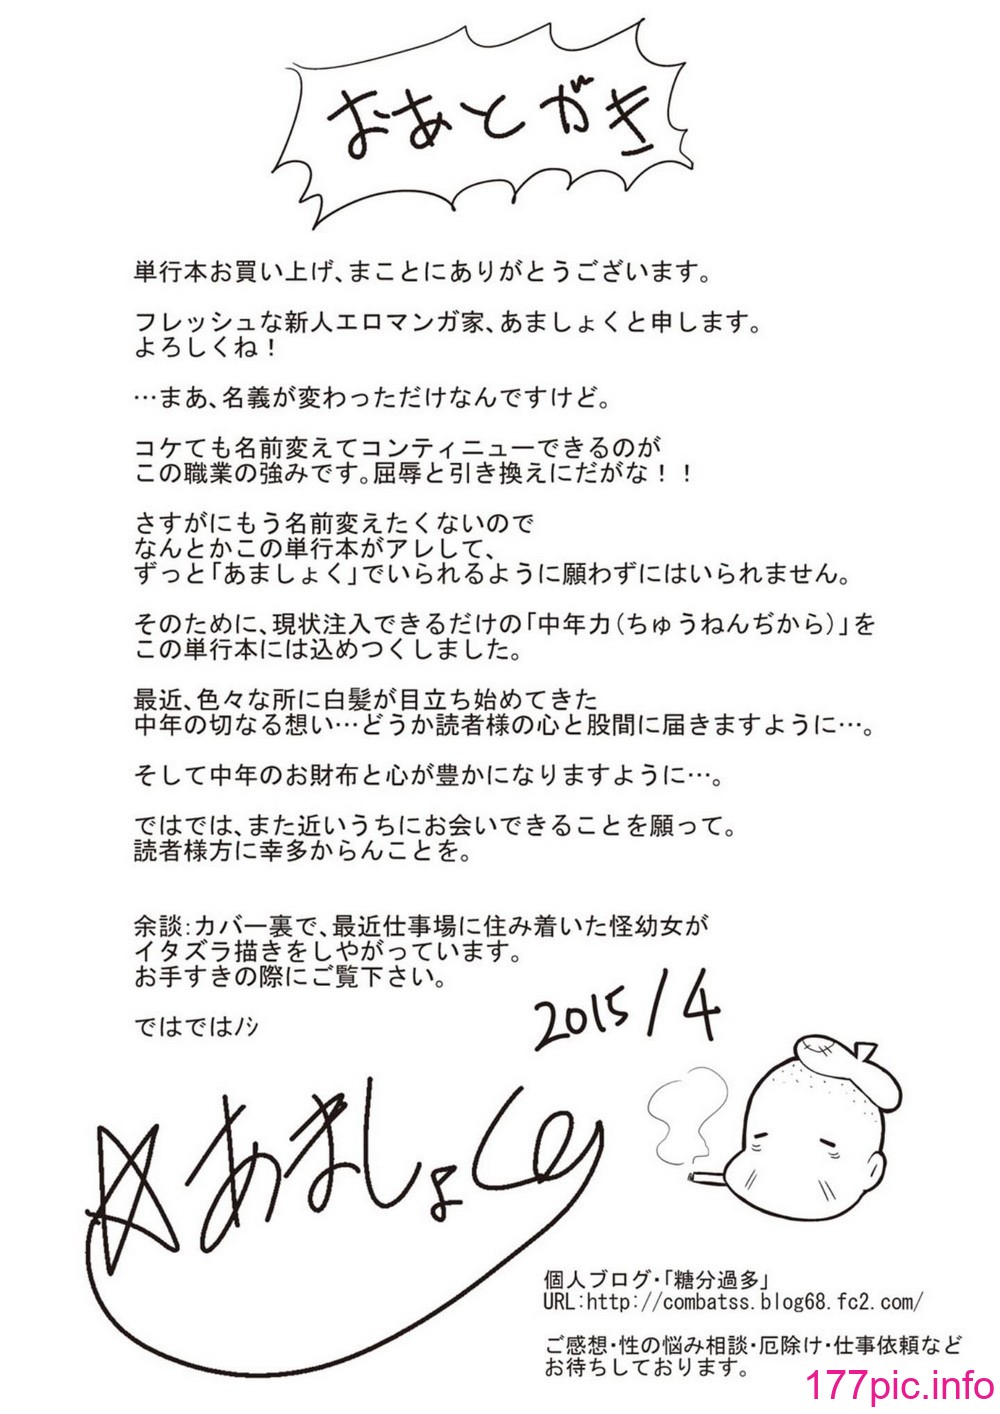 おあとがき
単行本お買い上げ、まことにありがとうございます。
フレッシュな新人エロマンガ家、あましょくと申します。
よろしくね!
…まあ、名義が変わっただけなんですけど。
コケても名前変えてコンティニューできるのが
この職業の強みです。屈辱と引き換えにだがな!!
さすがにもう名前変えたくないので
なんとかこの単行本がアレして、
ずっと「あましょく」でいられるように願わずにはいられません。
そのために、現状注入できるだけの「中年力(ちゅうねんぢから)」を
この単行本には込めつくしました。
最近、色々な所に白髪が目立ち始めてきた
中年の切なる想い…どうか読者様の心と股間に届きますように…。
そして中年のお財布と心が豊かになりますように…。
ではでは、また近いうちにお会いできることを願って。
読者様方に幸多からんことを。
余談:カバー裏で、最近仕事場に住み着いた怪幼女が
イタズラ描きをしやがっています。
お手すきの際にご覧下さい。
ではではノシ
2015/4
☆あましょく
個人ブログ・「糖分過多」
URL:http://combatss.blog68.fc2.com/
ご感想・性の悩み相談・厄除け・仕事依頼など
お待ちしております。
177pic.info